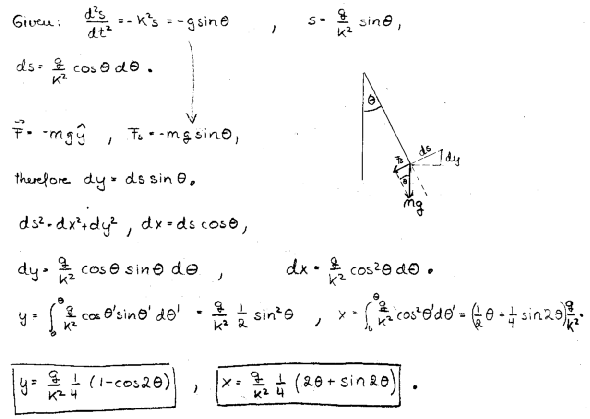 Given: d²s/dt² = -k²s = -g sinθ , s = g/k² sinθ,
ds = g/k² cosθ dθ.
F⃗ = -mgŷ , Fs = -mg sinθ,
therefore dy = ds sin θ.
ds² = dx² + dy² , dx = ds cosθ,
dy = g/k² cosθ sinθ dθ , dx = g/k² cos²θ dθ.
y = ∫₀^θ g/k² cosθ' sinθ' dθ' = g/k² 1/2 sin²θ , x = ∫₀^θ g/k² cos²θ' dθ' = (1/2 θ + 1/4 sin 2θ) g/k².
y = g/k² 1/4 (1-cos2θ) , x = g/k² 1/4 (2θ + sin 2θ) .
θ
Fs
ds
dy
θ
mg